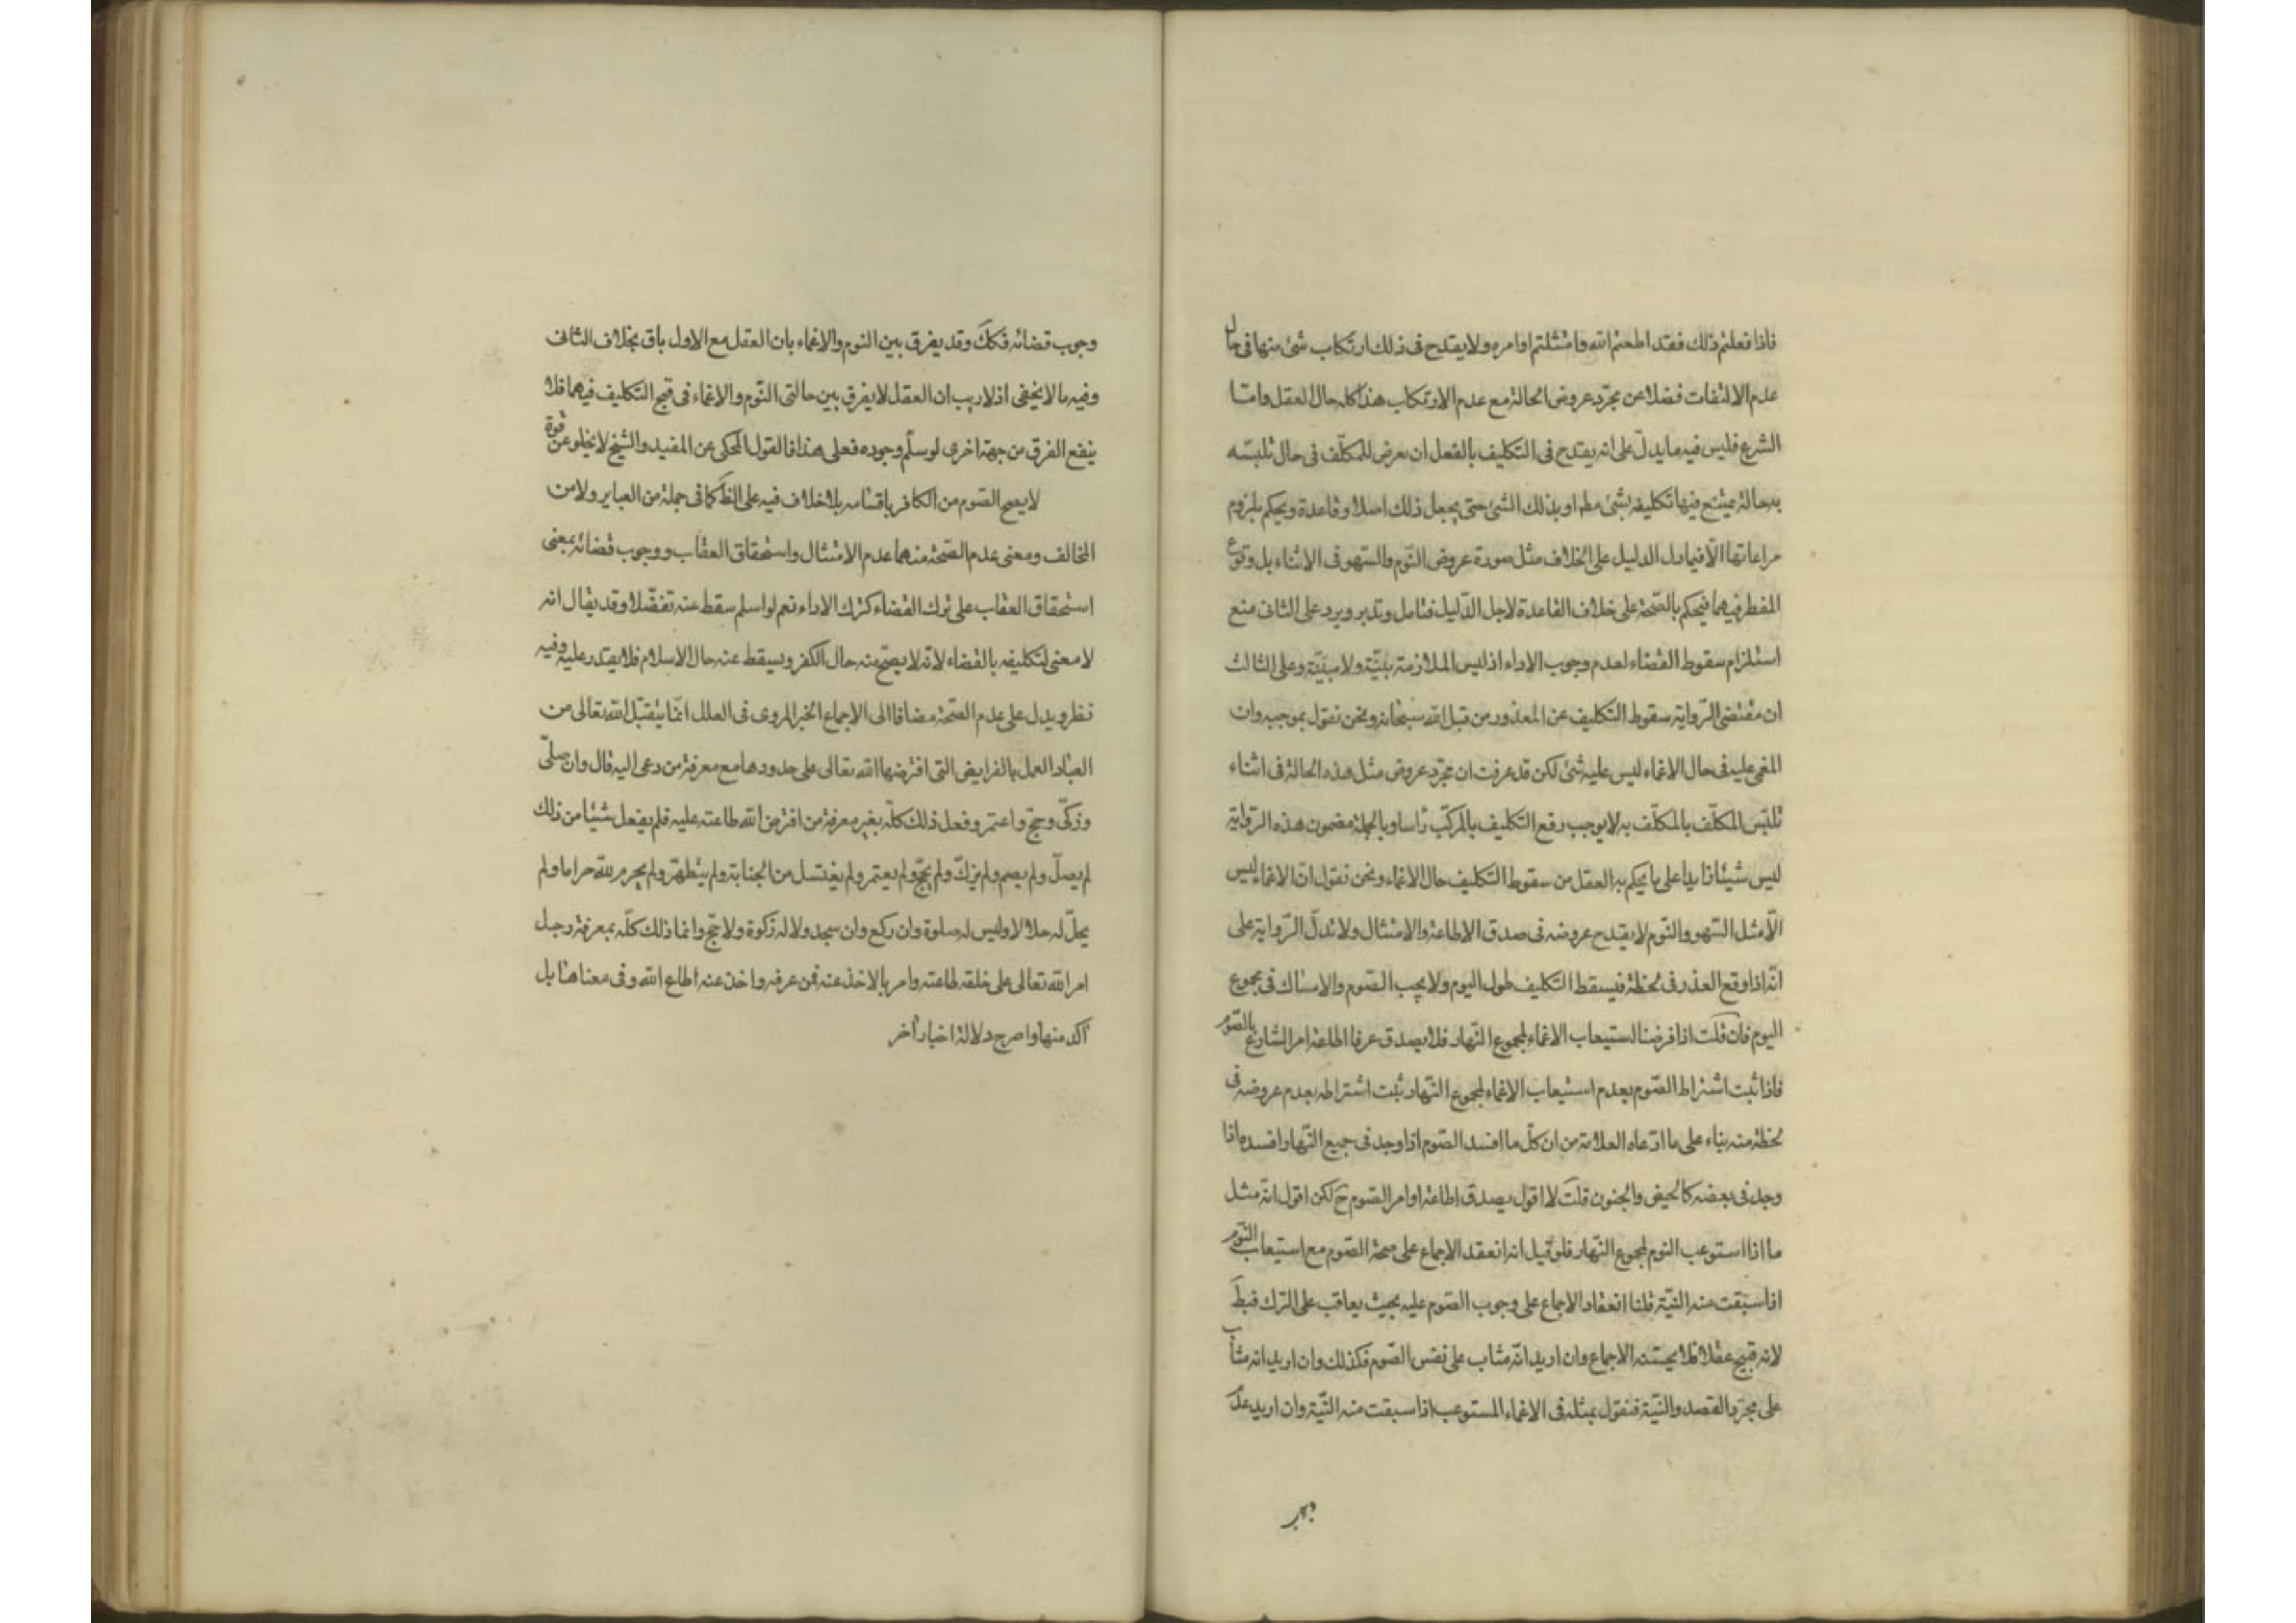 فاذا فعلتم ذلك فقد اطعتم الله وامتثلتم اوامره ولا يقدح فى ذلك ارتكاب شئ منها فى حال
عدم الالتفات فضلا عن مجرّد عروض الحالة مع عدم الارتكاب هذا كله حال العقل وامّا
الشرع فليس فيه ما يدلّ على انه يقدح فى التكليف بالفعل ان يعرض للمكلّف فى حال تلبسّه
به حالة يمتنع فيها تكليفه بشئ مط او بذلك الشئ حتى يجعل ذلك اصلا وقاعدة ويحكم بلزوم
مراعاتها الّا فيما دل الدليل على الخلاف مثل صورة عروض النّوم والسّهو فى الاثناء بل وقوع
المفطر فيهما فيحكم بالصّحة على خلاف القاعدة لاجل الدّليل فتامل وتدبر ويرد على الثانى منع
استلزام سقوط القضاء لعدم وجوب الاداء اذ ليس الملازمة بليّنة ولا مبيّنة وعلى الثالث
ان مقتضى الرّواية سقوط التكليف عن المعذور من قبل الله سبحانه ونحن نقول بموجبه وان
المغمى عليه فى حال الاغماء ليس عليه شئ لكن قد عرفت ان مجرّد عروض مثل هذه الحالة فى اثناء
تلبّس المكلّف بالمكلّف به لا يوجب رفع التكليف بالمركّب رأسا وبالجملة مضمون هذه الرّواية
ليس شيئا زايدا على ما يحكم به العقل من سقوط التكليف حال الاغماء ونحن نقول انّ الاغماء ليس
الّا مثل السّهو والنّوم لا يقدح عروضه فى صدق الاطاعة والامتثال ولا تدلّ الرّواية على
انّه اذا وقع العذر فى لحظة فيسقط التكليف طول اليوم ولا يجب الصّوم والامساك فى مجموع
اليوم فان قلت اذا فرضنا استيعاب الاغماء لمجموع النّهار فلا يصدق عرفا اطاعة امر الشارع بالصّوم
فاذا ثبت اشتراط الصّوم بعدم استيعاب الاغماء لمجموع النّهار ثبت اشتراطه بعدم عروضه فى
لحظة منه بناء على ما ادّعاه العلامة من ان كلّ ما افسد الصّوم اذا وجد فى جميع النّهار افسده اذا
وجد فى بعضه كالحيض والجنون قلت لا اقول بصدق اطاعة اوامر الصّوم ح لكن اقول انّه مثل
ما اذا استوعب النوم لمجموع النّهار فلو قيل انه انعقد الاجماع على صحّة الصّوم مع استيعاب النّوم
اذا سبقت منه النيّة قلنا انعقاد الاجماع على وجوب الصّوم عليه بحيث يعاقب على الترك فبط
لانه قبيح عقلا فلا يحسّنه الاجماع وان اريد انّه مثاب على نفس الصّوم فكذلك وان اريد انه مثاب
على مجرّد القصد والنيّة فنقول بمثله فى الاغماء المستوعب اذا سبقت منه النّيّة وان اريد عدم
وجوب قضائه فكك وقد يفرق بين النوم والاغماء بان العقل مع الاول باق بخلاف الثانى
وفيه ما لا يخفى اذ لا ريب ان العقل لا يفرق بين حالتى النّوم والاغماء فى قبح التكليف فيهما فلا
ينفع الفرق من جهة اخرى لو سلّم وجوده فعلى هذا فالقول المحكى عن المفيد والشيخ لا يخلو عن قوة
لا يصح الصّوم من الكافر باقسامه بلا خلاف فيه على الظ كما فى جملة من العباير ولا من
المخالف ومعنى عدم الصّحة منهما عدم الامتثال واستحقاق العقاب ووجوب قضائه بمعنى
استحقاق العقاب على ترك القضاء كترك الاداء نعم لو اسلم سقط عنه تفضّلا وقد يقال انه
لا معنى لتكليفه بالقضاء لانّه لا يصحّ منه حال الكفر ويسقط عنه حال الاسلام فلا يقدر عليه وفيه
نظر ويدل على عدم الصّحة مضافا الى الاجماع الخبر المروى فى العلل انّما يتقبّل الله تعالى من
العباد العمل بالفرايض التى افترضها الله تعالى على حدودها مع معرفة من دعى اليه قال وان صلّى
وزكّى وحجّ واعتمر وفعل ذلك كلّه بغير معرفة من افترض الله طاعته عليه فلم يفعل شيئا من ذلك
لم يصلّ ولم يصم ولم يزكّ ولم يحجّ ولم يعتمر ولم يغتسل من الجنابة ولم يتطهّر ولم يحرم لله حراما ولم
يحلّ له حلالا وليس له صلوة وان ركع وان سجد ولا له زكوة ولا حجّ وانما ذلك كلّه بمعرفة رجل
امر الله تعالى على خلقه طاعته وامر بالاخذ عنه فمن عرفه واخذ عنه اطاع الله وفى معناها بل
آكد منها واصرح دلالة اخبار أخر